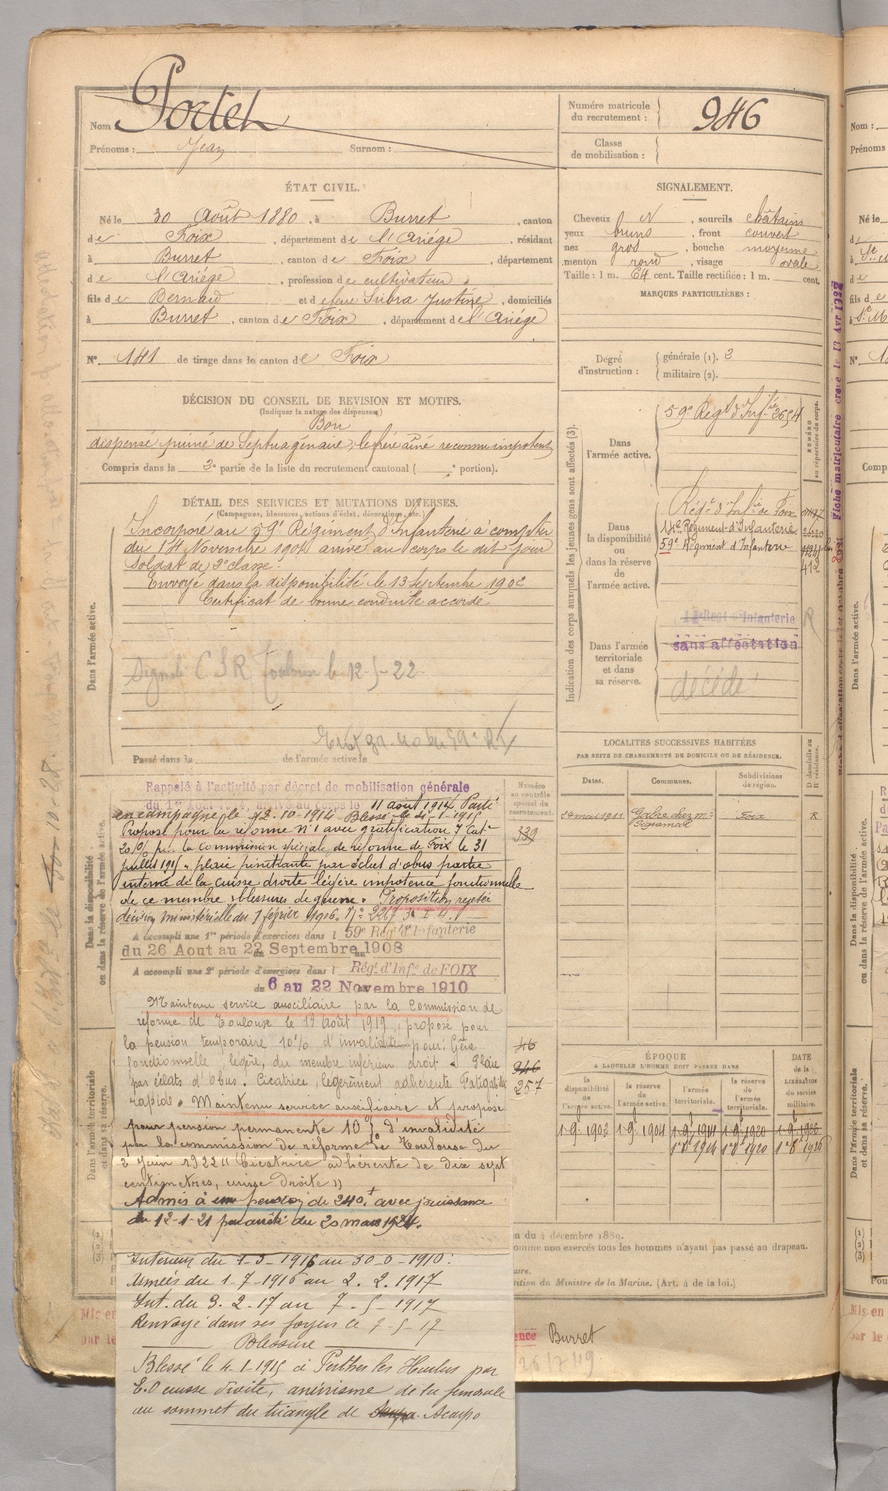 Nom Portet
Prénoms : Jean Surnom :
Numéro matricule du recrutement : 946
Classe de mobilisation :
ÉTAT CIVIL.
Né le 30 Août 1880, à Burret, canton
de Foix, département de l'Ariège, résidant
à Burret, canton de Foix, département
de l'Ariège, profession de cultivateur,
fils de Bernard et de feue Subra Justine, domiciliés
à Burret, canton de Foix, département de l'Ariège
N° 141 de tirage dans le canton de Foix
SIGNALEMENT.
Cheveux N, sourcils châtains
yeux bruns, front couvert
nez gros, bouche moyenne
menton rond, visage ovale
Taille : 1 m. 64 cent. Taille rectifiée : 1 m. cent.
MARQUES PARTICULIÈRES :
Degré d'instruction : générale (1). 3
militaire (2).
DÉCISION DU CONSEIL DE REVISION ET MOTIFS.
(Indiquer la nature des dispenses)
Bon
dispensé puiné de Septuagénaire, le frère aîné reconnu impotent
Compris dans la 3e partie de la liste du recrutement cantonal ( portion).
DÉTAIL DES SERVICES ET MUTATIONS DIVERSES.
(Campagnes, blessures, actions d'éclat, décorations, etc.)
Dans l'armée active.
Incorporé au 59e Régiment d'Infanterie à compter
du 14 Novembre 1901 arrivé au corps le dit jour
Soldat de 2e classe.
Envoyé dans la disponibilité le 13 Septembre 1902
Certificat de bonne conduite accordé
Signalé C S R Toulouse le 12-5-22
Passé dans la de l'armée active le
Indication des corps auxquels les jeunes gens sont affectés (3).
Dans l'armée active.
59e Régt d'Infie 2654
NUMÉRO au répertoire du corps.
Dans la disponibilité ou dans la réserve de l'armée active.
Régt d'Infie de Foix
14e Régiment d'Infanterie
59e Régiment d'Infanterie
412
Dans l'armée territoriale et dans sa réserve.
Regt d'Infanterie
sans affectation
décédé
R
LOCALITÉS SUCCESSIVES HABITÉES
PAR SUITE DE CHANGEMENTS DE DOMICILE OU DE RÉSIDENCE.
Dates. Communes. Subdivisions de région. D. domicile ou R. résidence.
24 mai 1911 Gabre chez Mr Foix R
Dans la disponibilité ou dans la réserve de l'armée active.
Rappelé à l'activité par décret de mobilisation générale
du 1er Août 1914, arrivé au corps le 11 août 1914. Parti
en campagne le 13.10.1914 Blessé le 4-1-1915
Proposé pour la réforme n°1 avec gratification 7e Catie
20% par la commission spéciale de réforme de Foix le 31
juillet 1915. plaie pénétrante par éclat d'obus partie
interne de la cuisse droite légère impotence fonctionnelle
de ce membre. blessures de guerre. Proposition rejetée
décision ministérielle du 7 février 1916.
Numéro au contrôle spécial du recrutement.
339
A accompli une 1re période d'exercices dans le 59e Régt d'Infanterie
du 26 Aout au 22 Septembre 1908
A accompli une 2e période d'exercices dans le Régt d'Infie de FOIX
du 6 au 22 Novembre 1910
Maintenu service auxiliaire par la Commission de
réforme de Toulouse le 19 Août 1919, proposé pour
la pension temporaire 10% d'invalidité pour : Gêne
fonctionnelle, légère, du membre inférieur droit. Plaie
par éclats d'obus. Cicatrice, légèrement adhérente. Fatigabilité
rapide. Maintenu service auxiliaire et proposé
pour pension permanente 10% d'invalidité
par la commission de réforme de Toulouse du
2 Juin 1922 "Cicatrice adhérente de dix sept
centimètres, cuisse droite"
Admis à une pension de 240f avec jouissance
du 12-1-21 par arrêté du 20 mars 1924.
46
946
257
Intérieur du 1-3-1916 au 30-6-1916 :
Armées du 1-7-1916 au 2.2.1917
Int. du 3.2.17 au 7-5-1917
Renvoyé dans ses foyers le 7-5-17
Blessure
Blessé le 4-1-1915 à Perthes les Hurlus par
E.O cuisse droite, anévrisme de la fémorale
au sommet du triangle de Scarpa
Dans l'armée territoriale
ÉPOQUE
A LAQUELLE L'HOMME DOIT PASSER DANS
la disponibilité de l'armée active. la réserve de l'armée active. l'armée territoriale. la réserve de l'armée territoriale.
DATE de la LIBÉRATION du service militaire.
1-9-1902 1-9-1904 1-9-1914 1-9-1920 1-9-1926
1er 8 1914 1er 8 1920 1er 8 1926
on du 4 décembre 1889.
omme non exercés tous les hommes n'ayant pas passé au drapeau.
ition du Ministre de la Marine. (Art. 4 de la loi.)
Burret
Fiche matriculaire créée le 13 Avr 1932